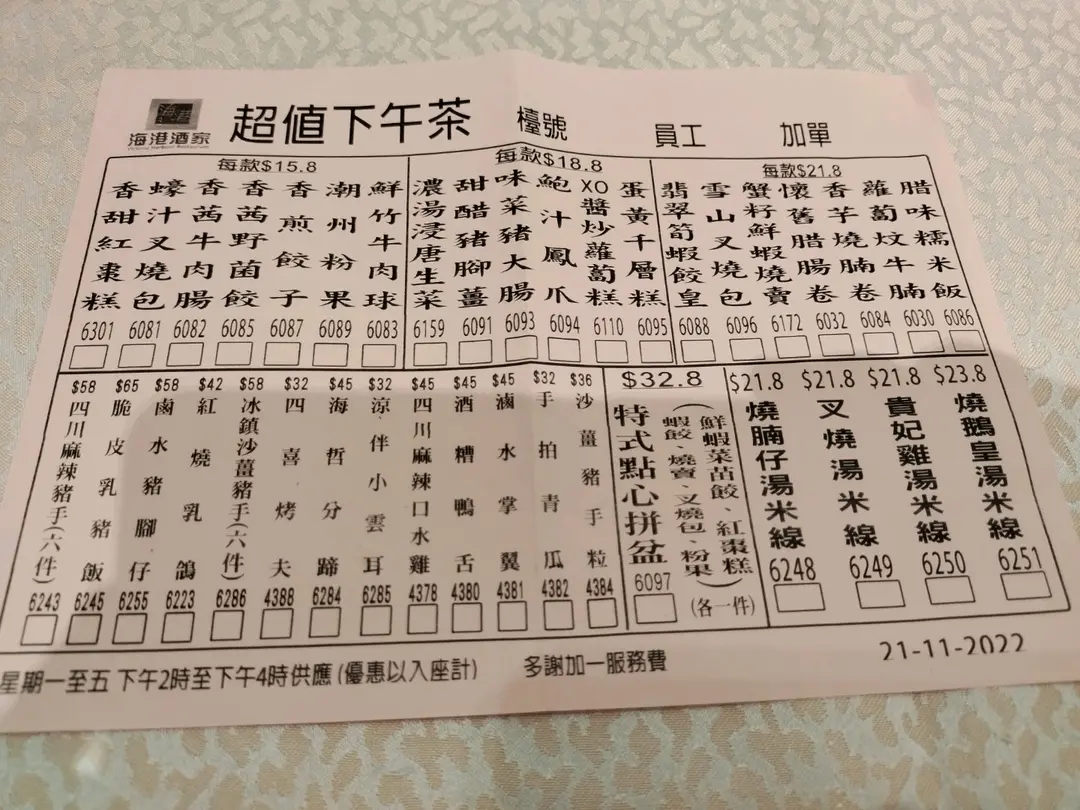 海港酒家
超值下午茶
檯號
員工
加單
每款$15.8
香甜紅棗糕 6301
蠔汁叉燒包 6081
香茜牛肉腸 6082
香茜野菌餃 6085
香煎餃子 6087
潮州粉果 6089
鮮竹牛肉球 6083
每款$18.8
濃湯浸唐生菜 6159
甜醋豬腳薑 6091
味菜豬大腸 6093
鮑汁鳳爪 6094
XO醬炒蘿蔔糕 6110
蛋黃千層糕 6095
每款$21.8
翡翠筍蝦餃皇 6088
雪山叉燒包 6096
蟹籽鮮蝦燒賣 6172
懷舊腊腸卷 6032
香芋燒腩卷 6084
蘿蔔炆牛腩 6030
腊味糯米飯 6086
$58 四川麻辣豬手(六件) 6243
$65 脆皮乳豬飯 6245
$58 鹵水豬腳仔 6255
$42 紅燒乳鴿 6223
$58 冰鎮沙薑豬手(六件) 6286
$32 四喜烤夫 4388
$45 海哲分蹄 6284
$32 涼伴小雲耳 6285
$45 四川麻辣口水雞 4378
$45 酒糟鴨舌 4380
$45 滷水掌翼 4381
$32 手拍青瓜 4382
$36 沙薑豬手粒 4384
$32.8
特式點心拼盆
(鮮蝦菜苗餃、紅棗糕
蝦餃、燒賣、叉燒包、粉果)
(各一件)
6097
$21.8 燒腩仔湯米線 6248
$21.8 叉燒湯米線 6249
$21.8 貴妃雞湯米線 6250
$23.8 燒鵝皇湯米線 6251
星期一至五 下午2時至下午4時供應 (優惠以入座計)
多謝加一服務費
21-11-2022